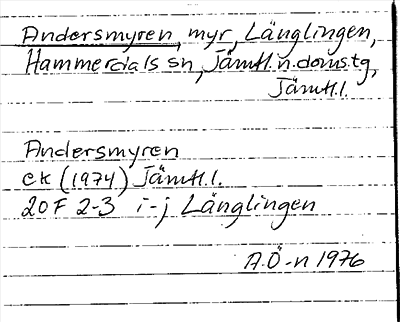 Andersmyren, myr, Länglingen,
Hammerdals sn, Jämtl. n. doms.tg,
Jämtl.l.
Andersmyren
ek (1974) Jämtl.l.
20F 2-3 i-j Länglingen
A.Ö-n 1976